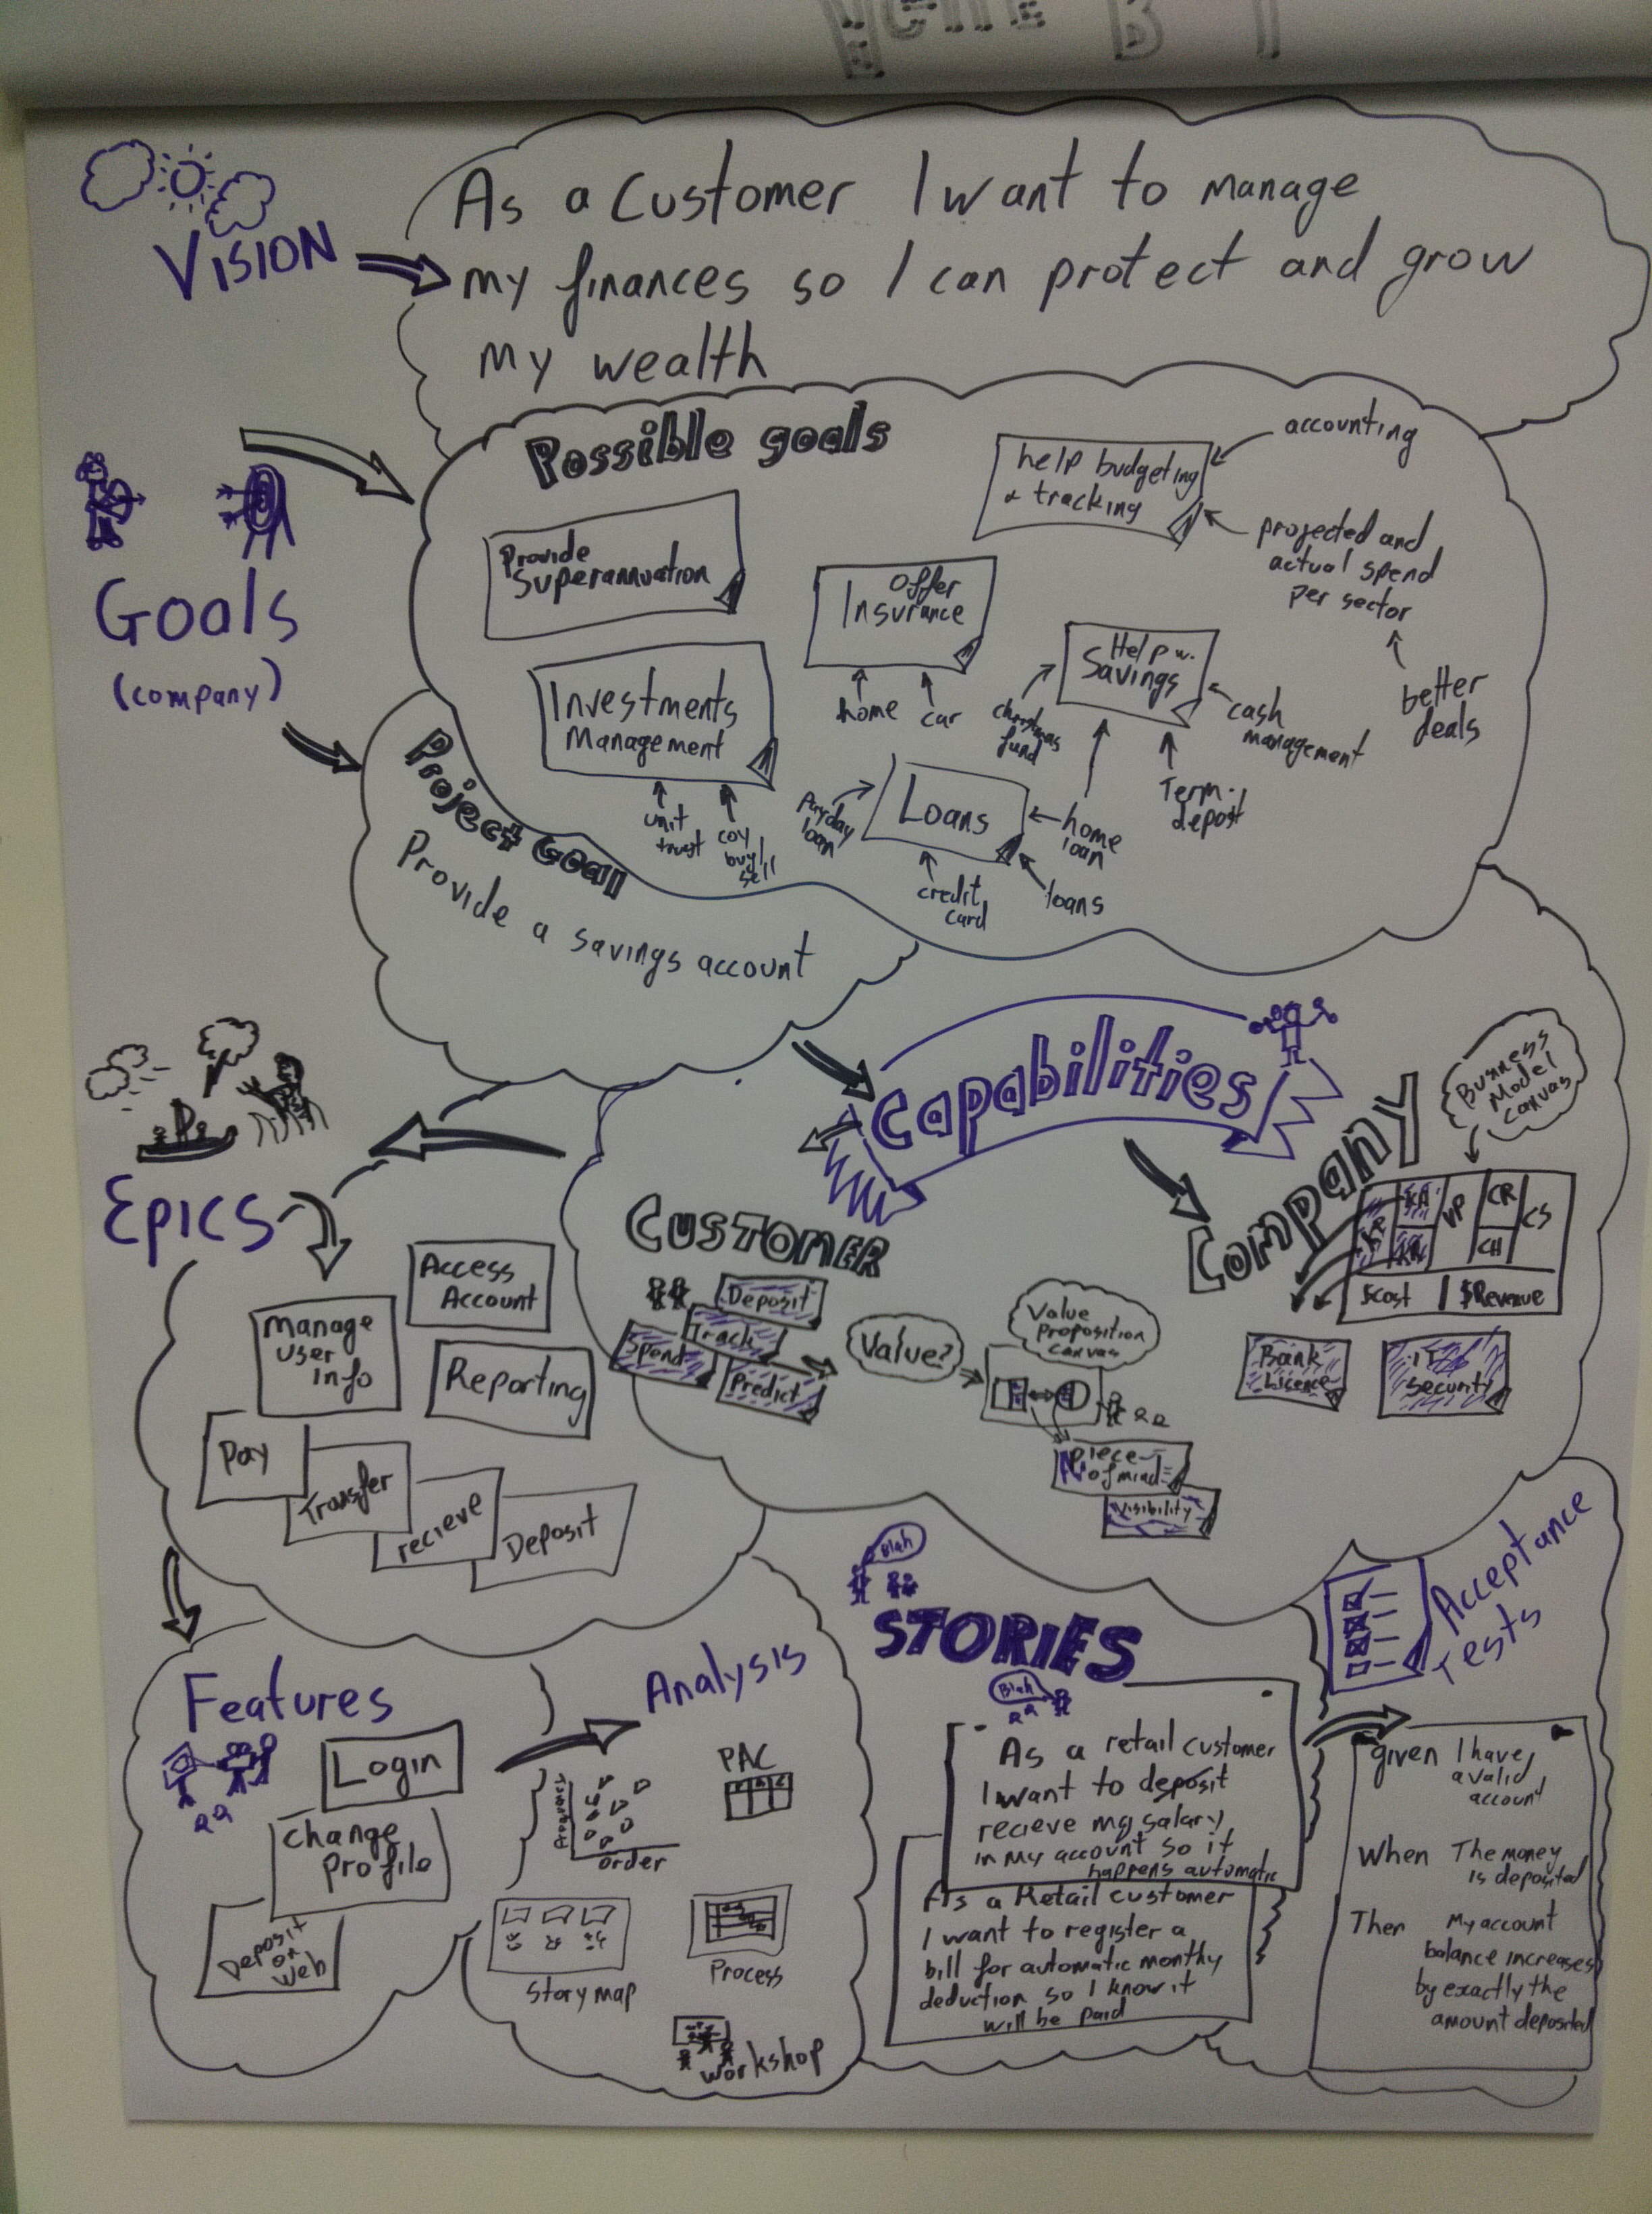 VISION
As a Customer I want to manage
my finances so I can protect and grow
my wealth
Goals
(company)
Possible goals
help budgeting
& tracking
accounting
projected and
actual spend
per sector
better
deals
Provide
Superannuation
Offer
Insurance
home
car
Help w.
Savings
christmas
fund
cash
management
Term
depost
Investments
Management
unit
trust
coy
buy/
sell
Loans
Payday
loan
home
loan
credit
card
loans
Project Goal
Provide a savings account
Capabilities
Company
Business
Model
Canvas
KA
VP
CR
CS
CH
$cost
$Revenue
Bank
Licence
IT
Security
CUSTOMER
Deposit
Track
Spend
Predict
Value?
Value
Proposition
canvas
Piece
of mind
Visibility
Epics
Access
Account
Manage
User
Info
Reporting
Pay
Transfer
recieve
Deposit
Features
Login
Change
Profile
Deposit
on
Web
Analysis
PAC
order
Story map
Process
workshop
Blah
STORIES
Blah
As a retail customer
I want to deposit
recieve my salary
in my account so it
happens automatic
As a Retail customer
I want to register a
bill for automatic monthy
deduction so I know it
will be paid
Acceptance
Tests
given I have
a valid
account
When The money
is deposited
Then My account
balance increases
by exactly the
amount deposited